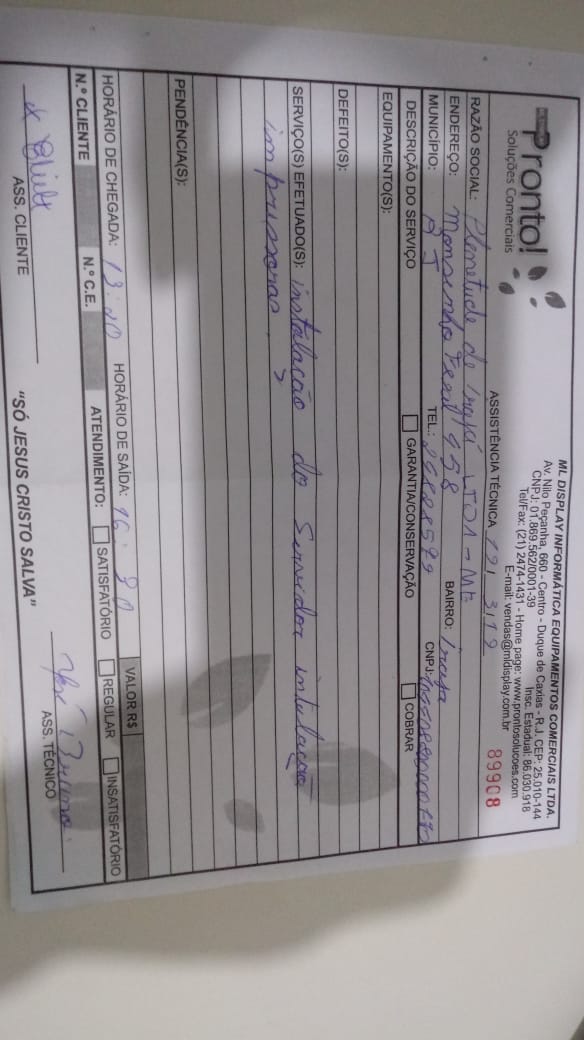 Pronto!
Soluções Comerciais
ML DISPLAY INFORMÁTICA EQUIPAMENTOS COMERCIAIS LTDA.
Av. Nilo Peçanha, 660 - Centro - Duque de Caxias - R.J. CEP: 25.010-144
CNPJ: 01.869.562/0001-39 Insc. Estadual: 86.030.918
Tel/Fax: (21) 2474-1431 - Home page: www.prontosolucoes.com
E-mail: vendas@mldisplay.com.br
ASSISTÊNCIA TÉCNICA 89908
RAZÃO SOCIAL: Plenitude de Irajá LTDA - ME
ENDEREÇO: Monsenhor Felix 958 BAIRRO: Iraja
MUNICÍPIO: RJ TEL.: CNPJ:
DESCRIÇÃO DO SERVIÇO GARANTIA/CONSERVAÇÃO COBRAR
EQUIPAMENTO(S):
DEFEITO(S):
SERVIÇO(S) EFETUADO(S): instalação do Servidor instalação
impressoras.
PENDÊNCIA(S):
VALOR R$
HORÁRIO DE CHEGADA: 13:40 HORÁRIO DE SAÍDA: 16:30
N.º CLIENTE N.º C.E. ATENDIMENTO: SATISFATÓRIO REGULAR INSATISFATÓRIO
ASS. CLIENTE ASS. TÉCNICO
"SÓ JESUS CRISTO SALVA"